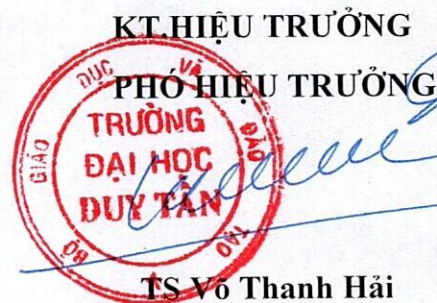 KT.HIỆU TRƯỞNG
PHÓ HIỆU TRƯỞNG
BỘ GIÁO DỤC VÀ ĐÀO TẠO
TRƯỜNG
ĐẠI HỌC
DUY TÂN
TS Võ Thanh Hải